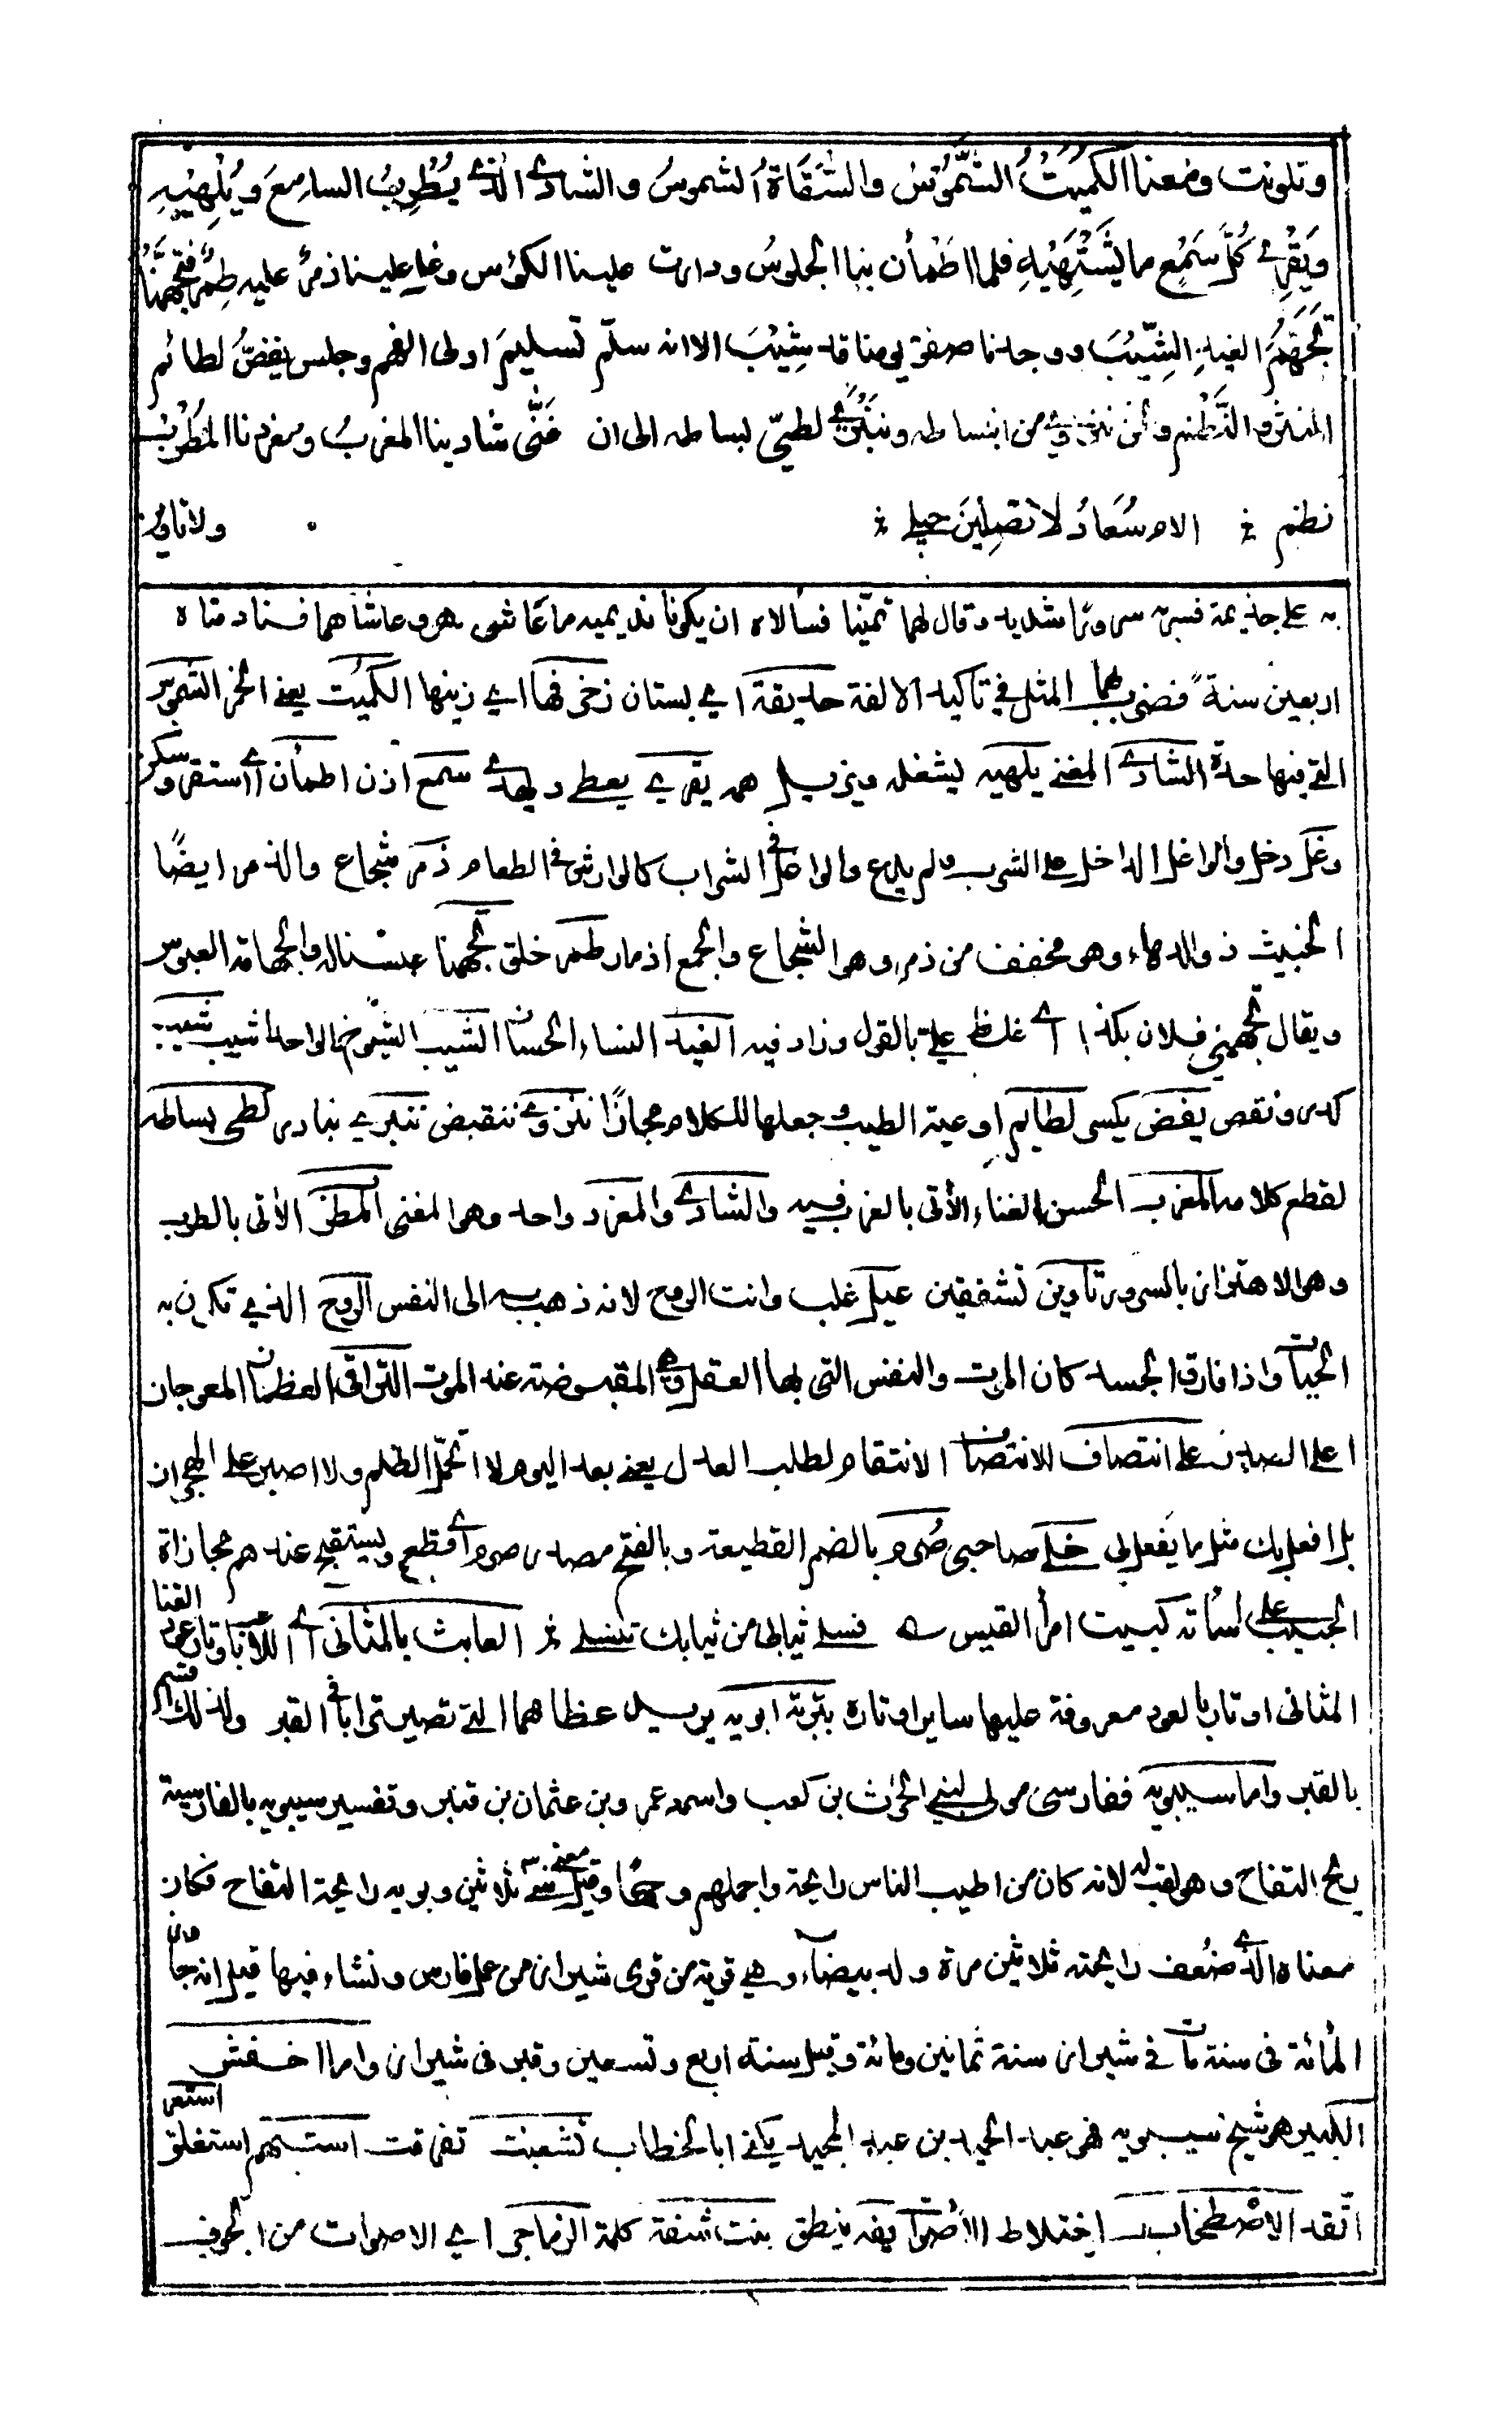 وتلونت ومعنا الكُمَيْتُ الشَّمُوْسُ والسُّقَاةُ الشموسُ والشادي الذي يُطْرِبُ السامعَ ويُلْهِيْهِ
ويَقْرِي كُلَّ سَمْعٍ ما يَشْتَهِيْهِ فلما اطْمأن بنا الجلوسُ ودارت علينا الكؤس وغل علينا ذمرٌ عليه طِمْرٌ فتجهّمناه
تَجَهُّمَ الغيدِ الشِّيْبَ ووجدنا صفو يومنا قد شِيْبَ الا انه سلّم تسليمَ اولى الفهم وجلس يفضّ لطائم
النثر والنَّظْم ونحن ننزوي من انبساطه وننبري لطيّ بساطه الى ان غَنَّى شادينا المغربُ ومغردنا المُطْرِبُ
نظم الام سُعَادُ لا تَصِلِينَ حبلي ولا تاوي
به على جذيمة فسر به سرورًا شديدا وقال لهما تمنّيا فسألاه ان يكونا نديميه ما عاش هو وعاشا هما فنادمتاه
اربعين سنة فضرب بهما المثل في تاكيد الالفة حديقة اي بستان زخرفها اي زينها الكميت يعني الخمر الشموس
التي فيها حدة الشادي المغني يلهيه يشغله ويزيل همه يقري يعطي ويهدي سمع اذن اطمأن اي استقر وسكن
وغل دخل والواغل الداخل على الشرب ولم يدع والواغل في الشراب كالوارش في الطعام ذمر شجاع والذمر ايضًا
الخبيث ذو الدهاء وهو مخفف من ذمر وهو الشجاع والجمع اذمار طمر خلق تجهمنا عبسنا له والجهامة العبوس
ويقال تجهمني فلان بكذا اي غلظ عليّ بالقول وزاد فيه الغيد النساء الحسان الشيب الشيوخ والواحد اشيب شيب
كدر ونقص يفض يكسر لطايم اوعية الطيب وجعلها للكلام مجازًا ننزوي ننقبض ننبري نبادر لطي بساطه
لقطع كلامه المغرب الحسن الغناء الأتي بالغرب فيه والشادي والمغرد واحد وهو المغني المطرب الأتي بالطرب
وهو الاهتزاز بالسرور تاوين تشفقين عيل غلب وانت الروح لانه ذهب به الى النفس الروح الذي تكون به
الحيات واذا فارق الجسد كان الموت والنفس التي لها العقل وهي المقبوضة عند الموت التراقي العظمان المعوجان
اعلى الصدر على انتصاف الانتصاف الانتقام لطلب العدل يعني بعد اليوم لا اتحمل الظلم ولا اصبر على الهجران
بل افعل بك مثل ما يفعل بي خلي صاحبي صُرم بالضم القطيعة وبالفتح مصدر صرم اي قطع ويستقبح عندهم مجازاة
الحبيب على أساته كبيت امرأ القيس فسلي ثيابي من ثيابك تنسلي العابث بالمثاني اي اللاعب باوتار عود الغنا
المثاني اوتار بالعود معروفة عليها ساير اوتاره بتربة ابويه يريد عظامهما التي تصير ترابا في القبر ولذلك قسم
بالقبر واما سيبويه ففارسي مولى لبني الحرث بن كعب واسمه عمرو بن عثمان بن قنبر وتفسير سيبويه بالفارسية
ريح التفاح وهو لقب له لانه كان من اطيب الناس رايحة واجملهم وجها وقيل معنى سي ثلاثين وبويه رايحة التفاح فكان
معناه الذي ضُعف رايحته ثلاثين مرة ولد ببيضاء وهي قرية من قرى شيراز من عمل فارس ونشاء فيها قيل انه جاوز
المائة في سنة مات في شيراز سنة ثمانين ومائة وقيل سنة اربع وتسعين وقبر في شيراز واما اخفش
الكبير هو شيخ سيبويه فهو عبد الحميد بن عبد المجيد يكنى ابا الخطاب تشعبت تفرقت استبهم استغلق
استعر اتقد الاصطخاب اختلاط الاصوات يفه ينطق ببنت شفة كلمة الزماجر اي الاصوات من الجوف